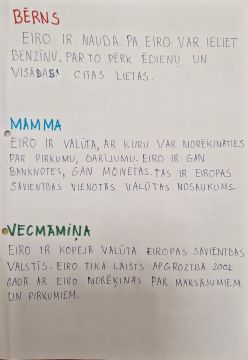 BĒRNS
EIRO IR NAUDA. PA EIRO VAR IELIET
BENZĪNU. PAR TO PĒRK ĒDIENU UN
VISĀDAS CITAS LIETAS.
MAMMA
EIRO IR VALŪTA, AR KURU VAR NORĒĶINĀTIES
PAR PIRKUMU, DARĪJUMU. EIRO IR GAN
BANKNOTES, GAN MONĒTAS. TAS IR EIROPAS
SAVIENĪBAS VIENOTĀS VALŪTAS NOSAUKUMS.
VECMĀMIŅA
EIRO IR KOPĒJĀ VALŪTA EIROPAS SAVIENĪBAS
VALSTĪS. EIRO TIKA LAISTS APGROZĪBĀ 2002.
GADĀ. AR EIRO NORĒĶINĀS PAR MAKSĀJUMIEM
UN PIRKUMIEM.